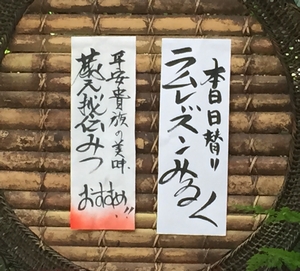 本日日替り
ラムレーズンみるく
平安貴族の美味
蔵元秘伝みつ
おすすめ!!